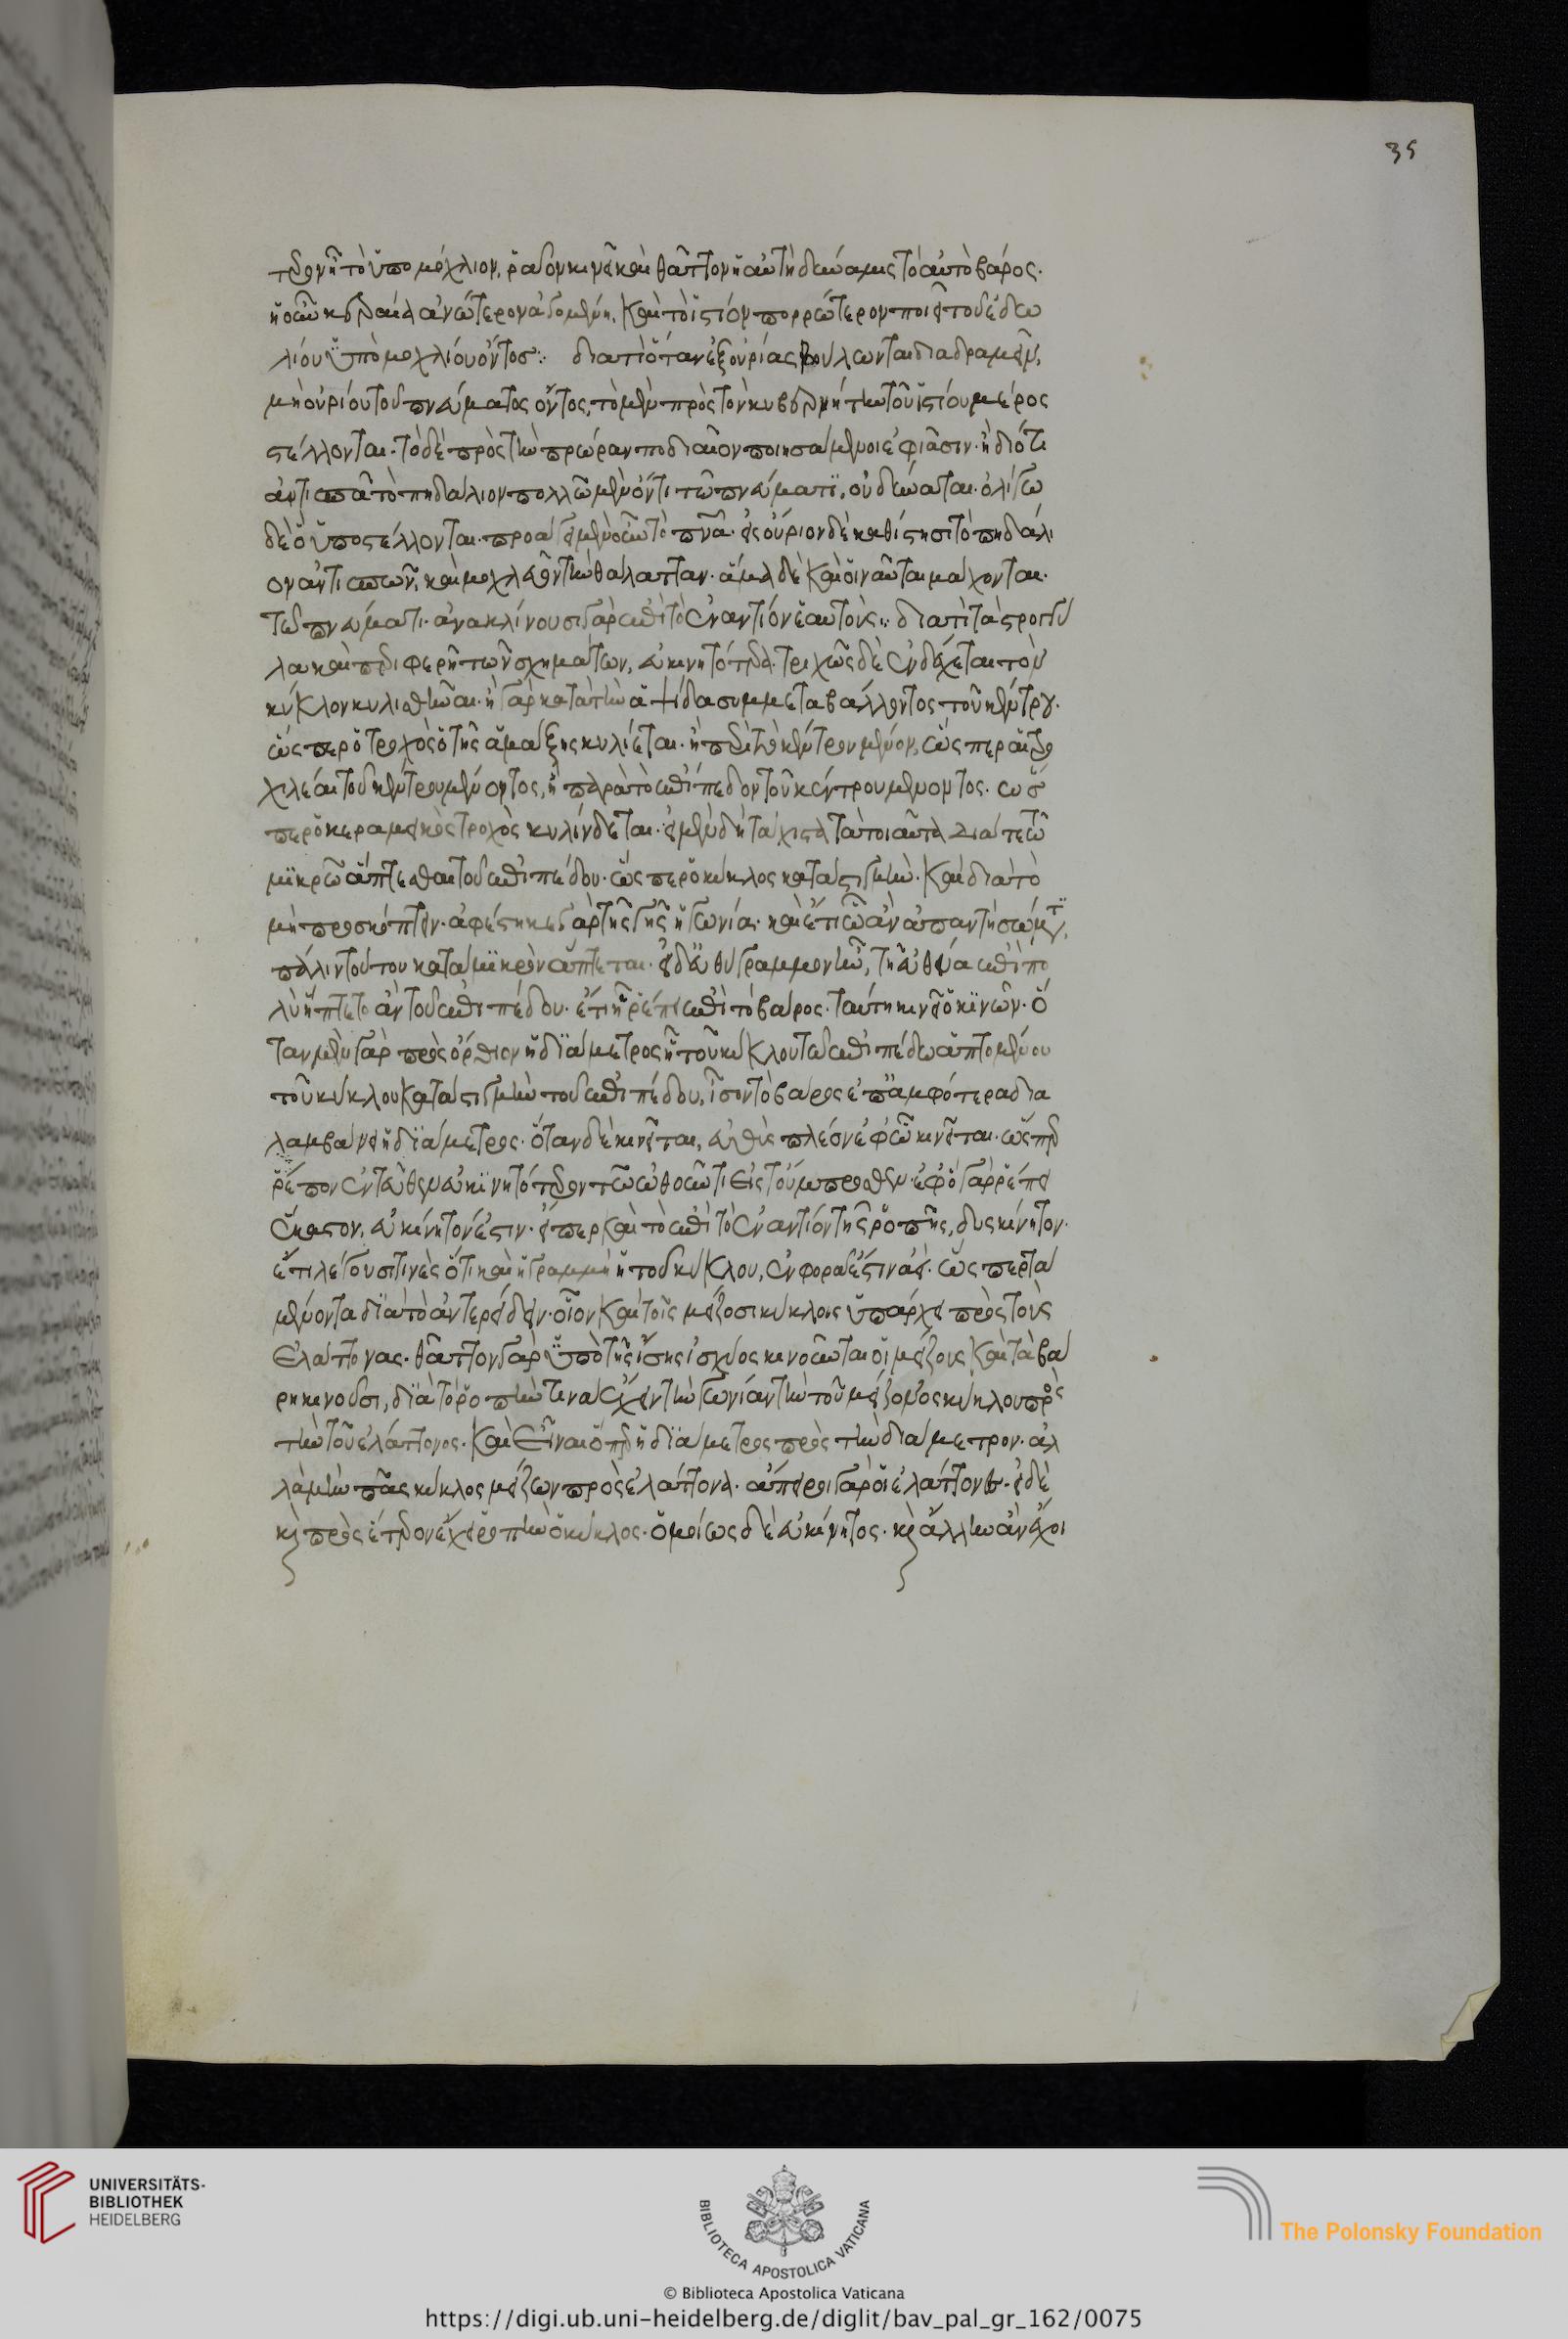 τερον ᾖ τὸ ὑπομόχλιον, ῥᾶον κινεῖ καὶ θᾶττον ἡ αὐτὴ δύναμις τὸ αὐτὸ βάρος.
ἡ οὖν κεραία ἀνώτερον ἀγομένη, καὶ τὸ ἱστίον πορρώτερον ποιεῖ τοῦ ἑδω
λίου ὑπομοχλίου ὄντος: διατί ὅταν ἐξ οὐρίας βούλωνται διαδραμεῖν,
μὴ οὐρίου τοῦ πνεύματος ὄντος, τὸ μὲν πρὸς τὸν κυβερνήτην τοῦ ἱστίου μέρος
στέλλονται. τὸ δὲ πρὸς τὴν πρώραν ποδιαῖον ποιησάμενοι ἐφιᾶσιν. ἢ διότι
ἀντισπᾶ τὸ πηδάλιον πολλῶ μὲν ὄντι τῶ πνεύματϊ, οὐ δύναται. ὀλίγω
δὲ ὃ ὑποστέλλονται. προάγει μὲν οὖν τὸ πνᾶ. εἰς οὔριον δὲ καθίστησι τὸ πηδάλι
ον ἀντισπῶν, καὶ μοχλεῦον τὴν θάλατταν. ἅμα δὲ καὶ οἱ ναῦται μάχονται.
τῶ πνεύματι. ἀνακλίνουσι γὰρ ἐπὶ τὸ ἐναντίον ἑαυτούς: διατί τὰ στρογγύ
λα καὶ περιφερῆ τῶν σχημάτων, εὐκινητότερα. τριχῶς δὲ ἐνδέχεται τὸν
κύκλον κυλισθῆναι. ἢ γὰρ κατὰ τὴν ἁψίδα συμμεταβάλλοντος τοῦ κέντρου.
ὥσπερ ὁ τροχὸς ὁ τῆς ἁμάξης κυλίεται. ἢ περὶ τὸ κέντρον μένον, ὥσπερ αἱ τρο
χιλέαι τοῦ κέντρου μένοντος, ἢ παρὰ τὸ ἐπίπεδον τοῦ κέντρου μένοντος. ὥσ
περ ὁ κεραμεικὸς τροχὸς κυλίνδεται. εἰ μὲν δὴ τάχιστα τὰ τοιαῦτα διά τε τῶ
μϊκρῶ ἅπτεσθαι τοῦ ἐπιπέδου. ὥσπερ ὁ κύκλος κατὰ στιγμήν. καὶ διὰ τὸ
μὴ προσκόπτειν. ἀφέστηκε γὰρ τῆς γῆς ἡ γωνία. καὶ ἔτι ὧ ἂν ἀπαντήση σώματϊ,
πάλιν τούτου κατὰ μϊκρὸν ἅπτεται. εἰ δ' εὐθύγραμμον ἦν, τῆ εὐθεία ἐπὶ πο
λὺ ἥπτετο ἂν τοῦ ἐπιπέδου. ἔτι ἧ ῥέπει ἐπὶ τὸ βάρος. ταύτη κινεῖ ὁ κϊνῶν. ὅ
ταν μὲν γὰρ πρὸς ὄρθιον ἡ διάμετρος ἦ τοῦ κύκλου τῶ ἐπιπέδω ἁπτομένου
τοῦ κύκλου κατὰ στιγμὴν τοῦ ἐπιπέδου, ἴσον τὸ βάρος ἐπ' ἀμφότερα δια
λαμβάνει ἡ διάμετρος. ὅταν δὲ κινεῖται, εὐθὺς πλέον ἐφ' ὧ κινεῖται. ὥσπερ
ῥέπον ἐντεῦθεν εὐκϊνητότερον τῶ ὠθοῦντι εἰς τοὔμπροσθεν. ἐφ' ὃ γὰρ ῥέπει
ἕκαστον, εὐκίνητόν ἐστιν. εἴπερ καὶ τὸ ἐπὶ τὸ ἐναντίον τῆς ῥοπῆς, δυσκίνητον.
ἔτι λέγουσί τινες ὅτι καὶ ἡ γραμμὴ ἡ τοῦ κύκλου, ἐν φορᾶ ἐστιν ἀεί. ὥσπερ τὰ
μένοντα διὰ τὸ ἀντερείδειν. οἷον καὶ τοῖς μείζοσι κύκλοις ὑπάρχει πρὸς τοὺς
ἐλάττονας. θᾶττον γὰρ ὑπὸ τῆς ἴσης ἰσχύος κινοῦνται οἱ μείζους καὶ τὰ βά
ρη κινοῦσι, διὰ τὸ ῥοπήν τινα ἔχειν τὴν γωνίαν τὴν τοῦ μείζονος κύκλου πρὸς
τὴν τοῦ ἐλάττονος. καὶ εἶναι ὅπερ ἡ διάμετρος πρὸς τὴν διάμετρον. ἀλ
λὰ μὴν πᾶς κύκλος μείζων πρὸς ἐλάττονα. ἄπειροι γὰρ οἱ ἐλάττονες. εἰ δὲ
καὶ πρὸς ἕτερον ἔχει ῥοπὴν ὁ κύκλος. ὁμοίως δὲ εὐκίνητος. καὶ ἄλλην ἂν ἔχοι
35
UNIVERSITÄTS-
BIBLIOTHEK
HEIDELBERG
BIBLIOTECA APOSTOLICA VATICANA
© Biblioteca Apostolica Vaticana
The Polonsky Foundation
https://digi.ub.uni-heidelberg.de/diglit/bav_pal_gr_162/0075